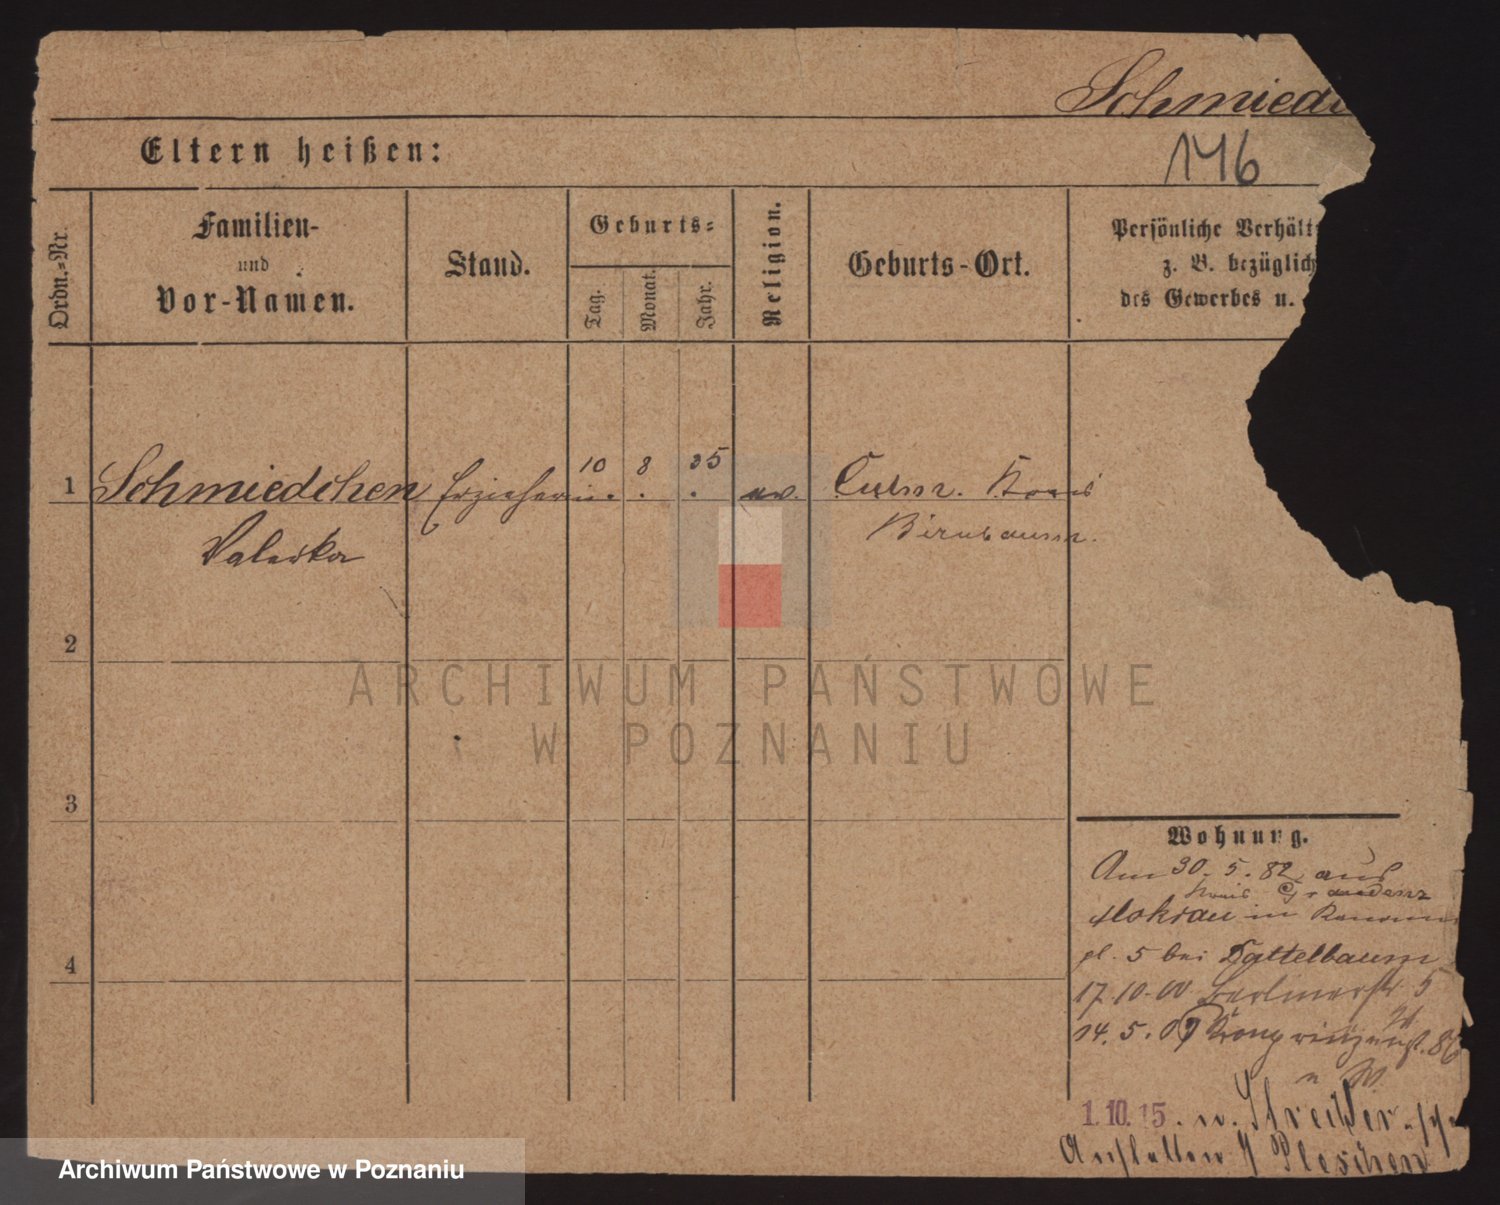 Schmied
146
Eltern heißen:
Ordn.=Nr.
Familien-
und
Vor-Namen.
Stand.
Geburts=
Tag.
Monat.
Jahr.
Religion.
Geburts-Ort.
Persönliche Verhält
z. B. bezüglich
des Gewerbes u.
1 Schmiedchen Erzieherin. 10 8 35 ev. Kreis
Valeska Birnbaum.
2
3
4
Wohnung.
Am 30. 5. 82 aus
Kreis Graudenz
Mokrau in
pl. 5 bei Dattelbaum
17.10.00 Berlinerstr 5
14. 5. 07 Kronprinzenst. 86
n W.
1.10.15. n.
Anstalten Pleschen
ARCHIWUM PAŃSTWOWE
W POZNANIU
Archiwum Państwowe w Poznaniu